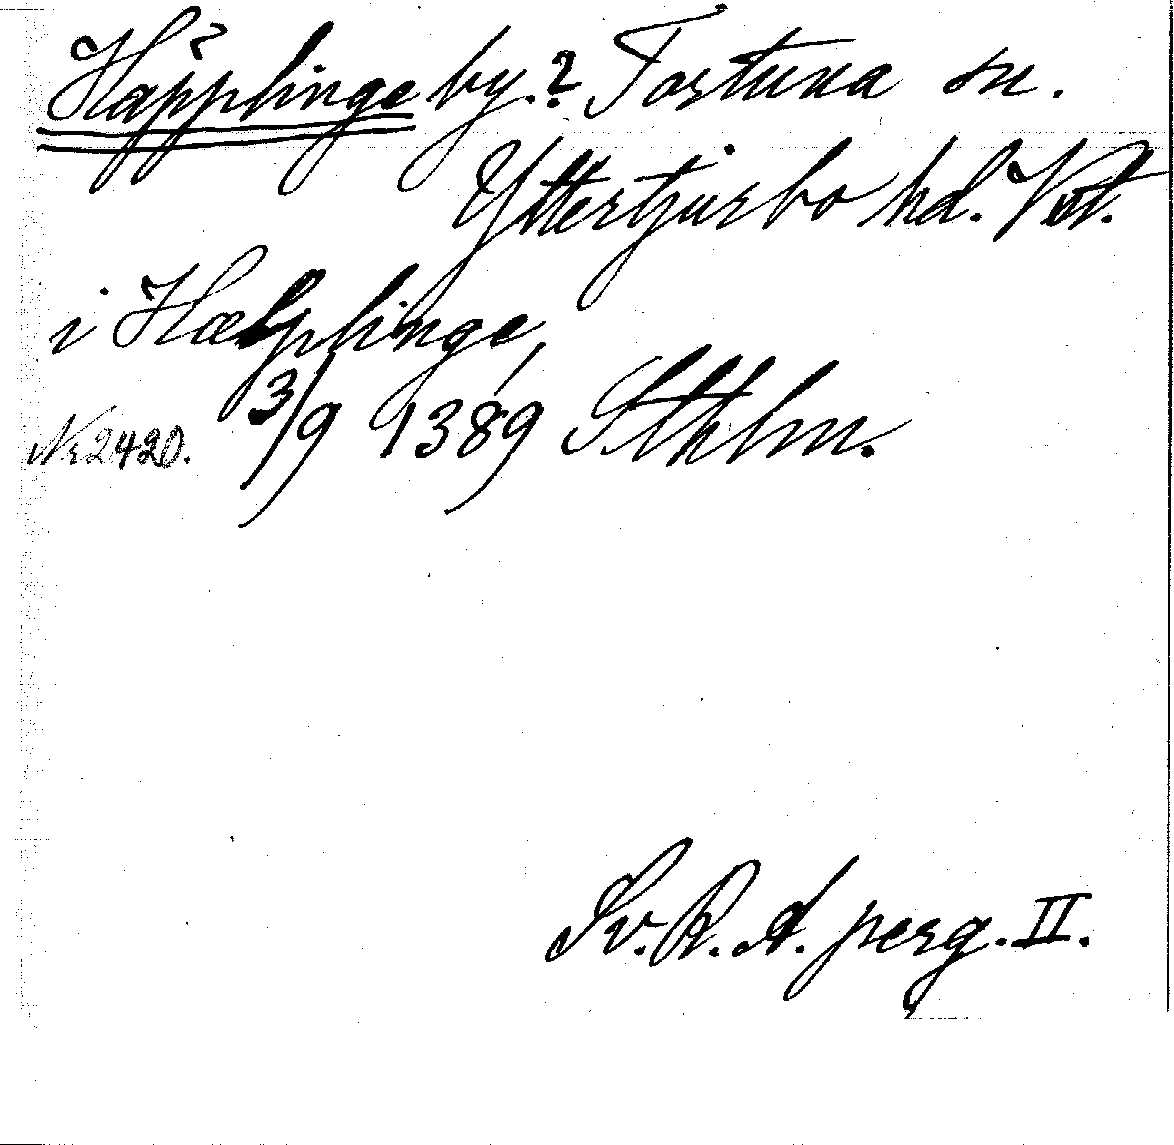 Häpplinge by.? Tortuna sn.
Yttertjurbo hd. Vstl.
i Hælplinge
3/9 1389 Sthlm.
Nr 2420.
Sv. R. A. perg. II.